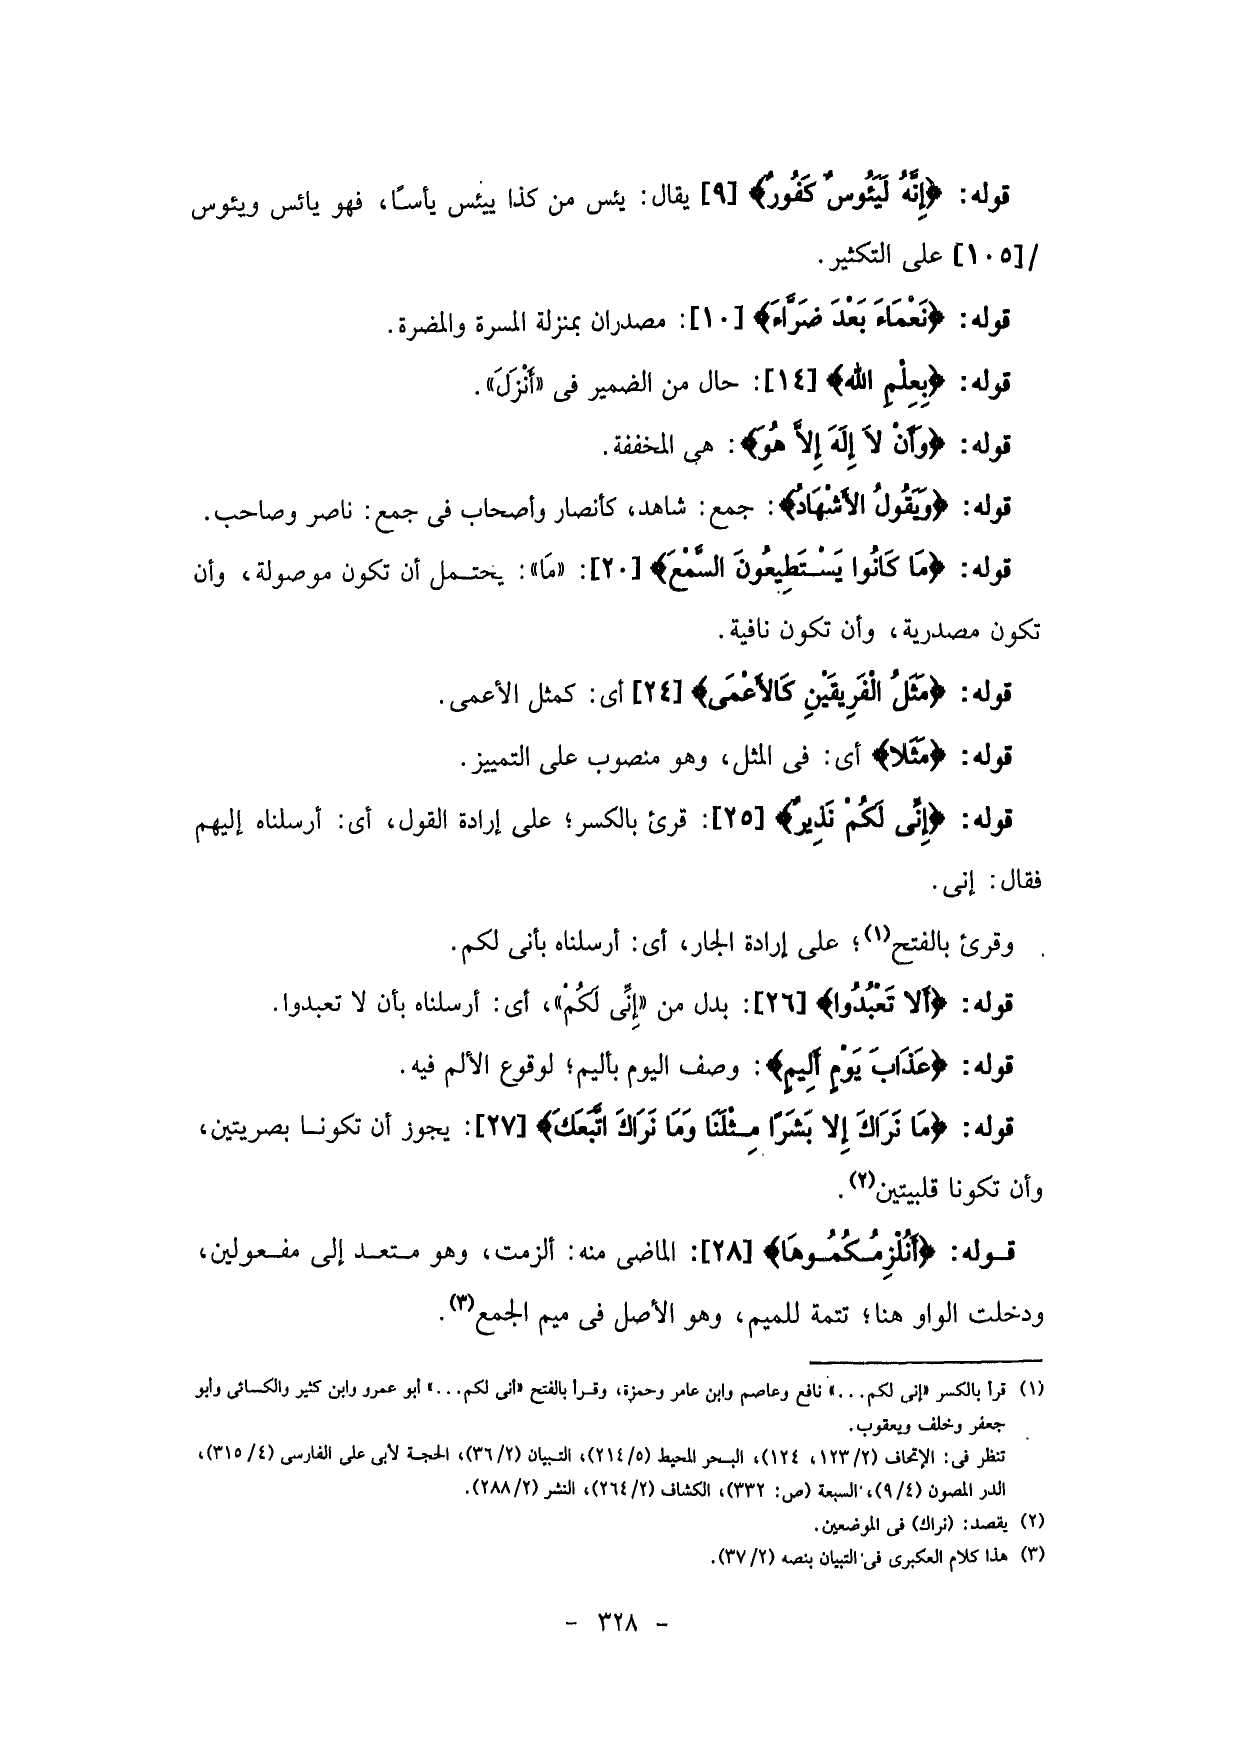 قوله: ﴿إِنَّهُ لَيَئُوسٌ كَفُورٌ﴾ [٩] يقال: يئس من كذا ييئس يأسًا، فهو يائس ويئوس
/[١٠٥] على التكثير.
قوله: ﴿نَعْمَاءَ بَعْدَ ضَرَّاءَ﴾ [١٠]: مصدران بمنزلة المسرة والمضرة.
قوله: ﴿بِعِلْمِ الله﴾ [١٤]: حال من الضمير فى «أَنْزَلَ».
قوله: ﴿وَأَنْ لاَ إِلَهَ إِلاَّ هُوَ﴾: هى المخففة.
قوله: ﴿وَيَقُولُ الأَشْهَادُ﴾: جمع: شاهد، كأنصار وأصحاب فى جمع: ناصر وصاحب.
قوله: ﴿مَا كَانُوا يَسْتَطِيعُونَ السَّمْعَ﴾ [٢٠]: «مَا»: يحتمل أن تكون موصولة، وأن
تكون مصدرية، وأن تكون نافية.
قوله: ﴿مَثَلُ الْفَرِيقَيْنِ كَالأَعْمَى﴾ [٢٤] أى: كمثل الأعمى.
قوله: ﴿مَثَلا﴾ أى: فى المثل، وهو منصوب على التمييز.
قوله: ﴿إِنِّى لَكُمْ نَذِيرٌ﴾ [٢٥]: قرئ بالكسر؛ على إرادة القول، أى: أرسلناه إليهم
فقال: إنى.
وقرئ بالفتح(١)؛ على إرادة الجار، أى: أرسلناه بأنى لكم.
قوله: ﴿أَلا تَعْبُدُوا﴾ [٢٦]: بدل من «إِنِّى لَكُمْ»، أى: أرسلناه بأن لا تعبدوا.
قوله: ﴿عَذَابَ يَوْمٍ أَلِيمٍ﴾: وصف اليوم بأليم؛ لوقوع الألم فيه.
قوله: ﴿مَا نَرَاكَ إِلا بَشَرًا مِثْلَنَا وَمَا نَرَاكَ اتَّبَعَكَ﴾ [٢٧]: يجوز أن تكونا بصريتين،
وأن تكونا قلبيتين(٢).
قوله: ﴿أَنُلْزِمُكُمُوهَا﴾ [٢٨]: الماضى منه: ألزمت، وهو متعد إلى مفعولين،
ودخلت الواو هنا؛ تتمة للميم، وهو الأصل فى ميم الجمع(٣).
(١) قرأ بالكسر «إنى لكم...» نافع وعاصم وابن عامر وحمزة، وقرأ بالفتح «أنى لكم...» أبو عمرو وابن كثير والكسائى وأبو
جعفر وخلف ويعقوب.
تنظر فى: الإتحاف (١٢٣/٢، ١٢٤)، البحر المحيط (٢١٤/٥)، التبيان (٣٦/٢)، الحجة لأبى على الفارسى (٣١٥/٤)،
الدر المصون (٩/٤)، السبعة (ص: ٣٣٢)، الكشاف (٢٦٤/٢)، النشر (٢٨٨/٢).
(٢) يقصد: (نراك) فى الموضعين.
(٣) هذا كلام العكبرى فى التبيان بنصه (٣٧/٢).
- ٣٢٨ -